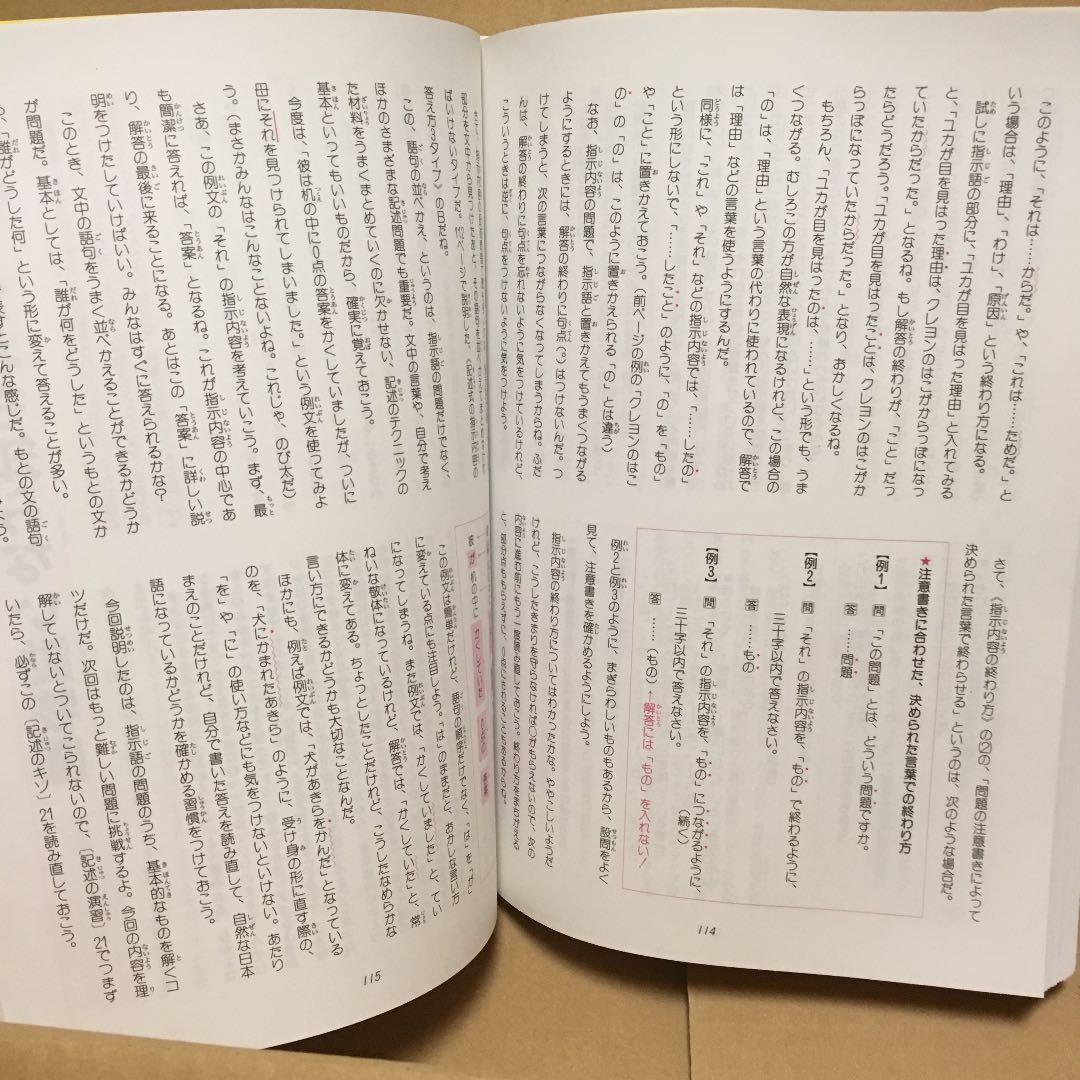 このように、「それは……からだ。」や、「これは……ためだ。」と
いう場合は、「理由」、「わけ」、「原因」という終わり方になる。
試しに指示語の部分に、「ユカが目を見はった理由」と入れてみる
と、「ユカが目を見はった理由は、クレヨンのはこがからっぽになっ
ていたからだった。」となるね。もし解答の終わりが、「こと」だっ
たらどうだろう。「ユカが目を見はったことは、クレヨンのはこがか
らっぽになっていたからだった。」となり、おかしくなるね。
もちろん、「ユカが目を見はったのは、……」という形でも、うま
くつながる。むしろこの方が自然な表現になるけれど、この場合の
「の」は、「理由」という言葉の代わりに使われているので、解答で
は「理由」などの言葉を使うようにするんだ。
同様に、「これ」や「それ」などの指示内容では、「……したの」
という形にしないで、「……したこと」のように、「の」を「もの」
や「こと」に置きかえておこう。(前ページの例の「クレヨンのはこ
の」の「の」は、このように置きかえられる「の」とは違う)
なお、指示内容の問題で、指示語と置きかえてもうまくつながる
ようにするときには、解答の終わりに句点(。)はつけないんだ。つ
けてしまうと、次の言葉につながらなくなってしまうからね。ふだ
んは、解答の終わりに句点を忘れないように気をつけているけれど、
こういうときは逆に、句点をつけないように気をつけよう。
さて、《指示内容の終わり方》の②の、「問題の注意書きによって
決められた言葉で終わらせる」というのは、次のような場合だ。
★注意書きに合わせた、決められた言葉での終わり方
【例1】 問 「この問題」とは、どういう問題ですか。
答 ……問題
【例2】 問 「それ」の指示内容を、「もの」で終わるように、
三十字以内で答えなさい。
答 ……もの
【例3】 問 「それ」の指示内容を、「もの」につながるように、
三十字以内で答えなさい。 (続く)
答 ……(もの)←解答には「もの」を入れない!
例2と例3のように、まぎらわしいものもあるから、設問をよく
見て、注意書きを確かめるようにしよう。
指示内容の終わり方についてはわかったかな。ややこしいようだ
けれど、こうしたきまりを守らなければ〇がもらえないので、次の
内容に進む前にもう一度読み直しておこう。
114
部分を文中から見つけたあと、
ばいけないタイプだ。112ページで説明した、《記述式の指示内容の
答え方3タイプ》のB日だね。
この、語句の並べかえ、というのは、指示語の問題だけでなく、
ほかのさまざまな記述問題でも重要だ。文中の言葉や、自分で考え
た材料をうまくまとめていくのに欠かせない、記述のテクニックの
基本といってもいいものだから、確実に覚えておこう。
今度は、「彼は机の中に0点の答案をかくしていましたが、ついに
母にそれを見つけられてしまいました。」という例文を使ってみよ
う。(まさかみんなはこんなことないよね。これじゃ、のび太だ)
さあ、この例文の「それ」の指示内容を考えていこう。まず、最
も簡潔に答えれば、「答案」となるね。これが指示内容の中心であ
り、解答の最後に来ることになる。あとはこの「答案」に詳しい説
明をつけたしていけばいい。みんなはすぐに答えられるかな?
このとき、文中の語句をうまく並べかえることができるかどうか
が問題だ。基本としては、「誰が何をどうした」というもとの文か
ら、「誰がどうした何」という形に変えて答えることが多い。
こんな感じだ。もとの文の語句
彼が机の中にかくしていた0点の答案
この例文は簡単だけれど、語句の順序だけでなく、「は」を「が」
に変えている点にも注目しよう。「は」のままだと、おかしな言い方
になってしまうね。また例文では、「かくしていました」と、てい
ねいな敬体になっているけれど、解答では、「かくしていた」と、常
体に変えてある。ちょっとしたことだけれど、こうしたなめらかな
言い方にできるかどうかも大切なことなんだ。
ほかにも、例えば例文では、「犬があきらをかんだ」となっている
のを、「犬にかまれたあきら」のように、受け身の形に直す際の、
「を」や「に」の使い方などにも気をつけないといけない。あたり
まえのことだけれど、自分で書いた答えを読み直して、自然な日本
語になっているかどうかを確かめる習慣をつけておこう。
今回説明したのは、指示語の問題のうち、基本的なものを解くコ
ツだけだ。次回はもっと難しい問題に挑戦するよ。今回の内容を理
解していないとついてこられないので、〔記述の演習〕21でつまず
いたら、必ずこの〔記述のキソ〕21を読み直しておこう。
115